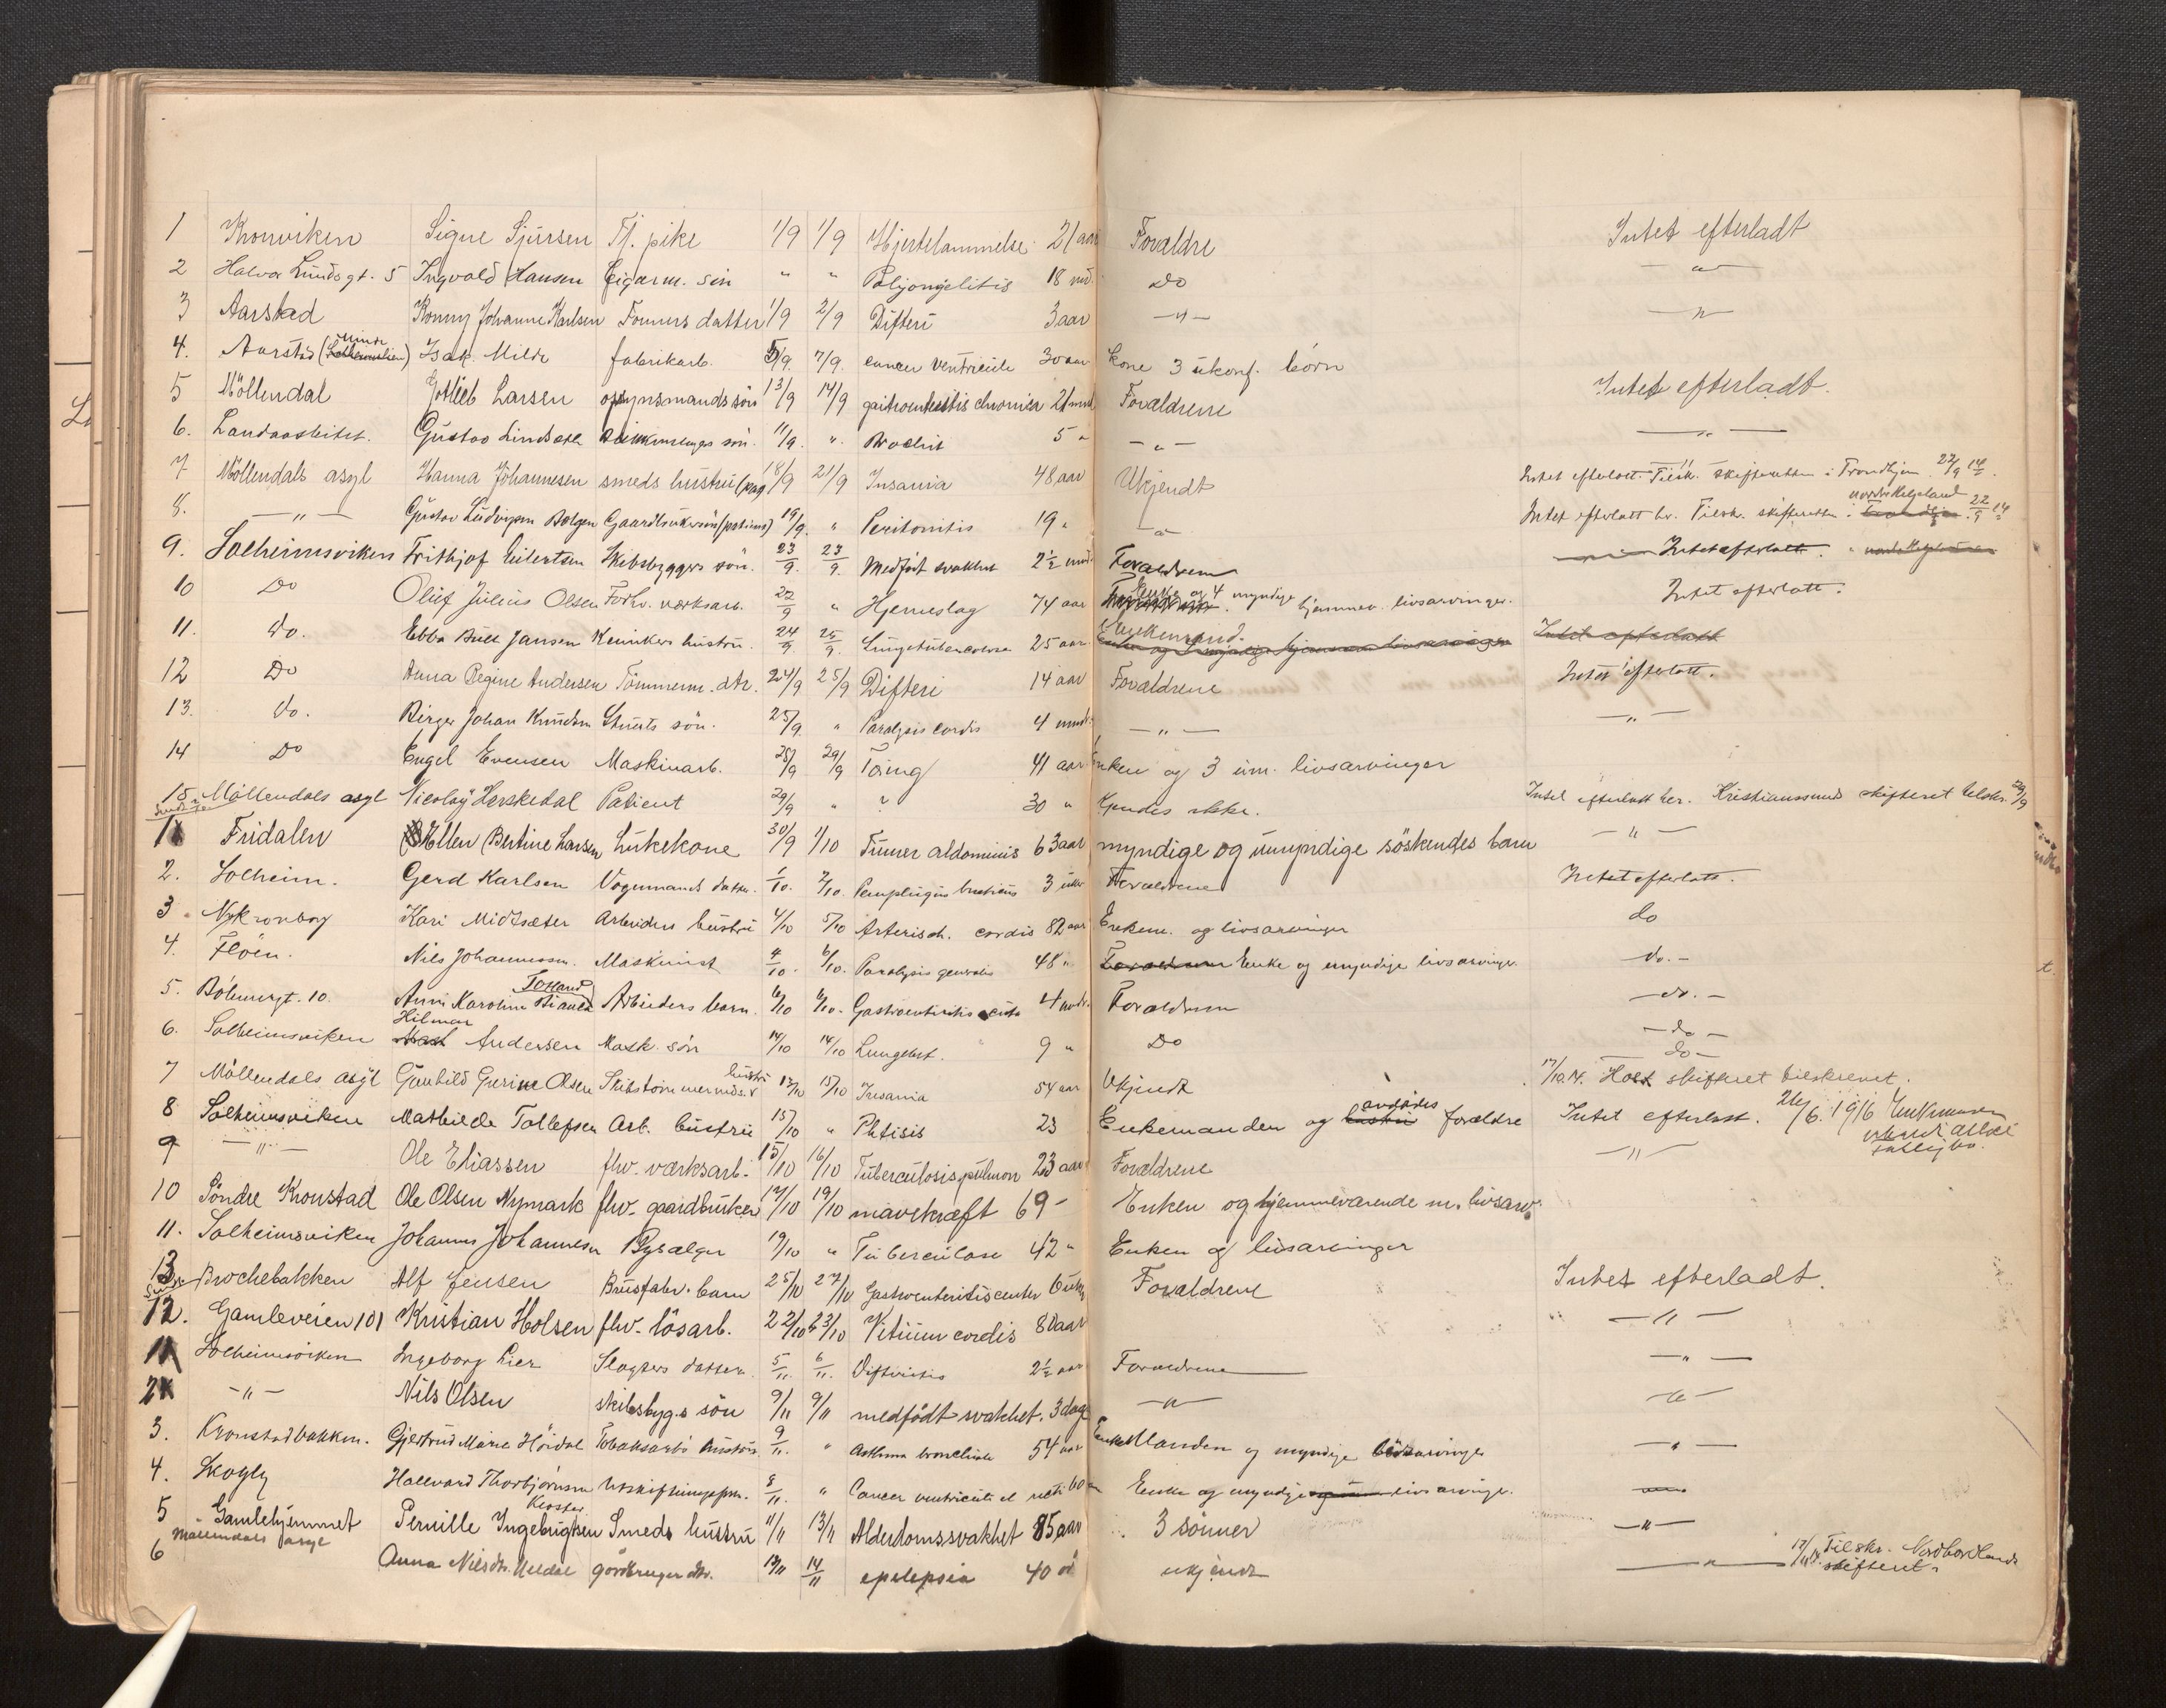 1 Kronviken Signe Sjursen Tj. pike 1/9 1/9 Hjertelammelse 21 aar Forældre Intet efterladt
2 Halvor Lunds gt. 5 Ingvold Hansen Cigarm. sön " " 18 md. Do — " —
3 Aarstad Ronny Johanne Karlsen Formers datter 1/9 2/9 Difteri 3 aar — " — — " —
4. Aarstad (Minde) Isak Milde fabrikarb. 5/9. 7/9. cancer ventricule 30 aar kone 3 ukonf. börn
5 Möllendal Gotlieb Larsen opsynsmands sön 13/9 14/9 chronica 21 mnd Forældrene Intet efterladt.
6. Landaasleitet. Gustav sön. 11/9. ". 5 " — " — — " —
7 Möllendals asyl Hanna Johannesen smeds hustru 18/9 21/9 Insania 48 aar Ukjendt Intet efterlatt. Tilsk. skifteretten i Trondhjem 22/9 14.
8. — " — Gustav Ludvigsen (patient) 19/9. " Peritonitis 19 " — " — Intet efterlatt her. Tilskr. skifteretten i nordre Helgeland 22/9 14
9. Solheimsviken Frithjof Eilertsen Skibsbyggers sön. 23/9. 23/9. Medfödt svakhet 2½ mnd. Forældrene Intet efterlatt.
10 Do Oluf Julius Olsen Forhv. værksarb. 22/9 " Hjerneslag 74 aar Enke og 4 myndige hjemmev. livsarvinger. Intet efterlatt.
11. do. Ebba Bull Jansen hustru. 24/9 25/9. Lungetuberculose 25 aar Enkemand. Intet efterlatt
12 Do Anna Regine Andersen Tömmerm. dtr. 24/9 25/9 Difteri 14 aar Forældrene Intet efterlatt.
13. do. Birger Johan Knudsen Stuerts sön. 25/9. " Paralysis cordis 4 mndr. — " — — " —
14 Do Engel Evensen Maskinarb. 28/9 29/9 Tæring 41 aar Enken og 3 um. livsarvinger
15 Möllendals asyl Nicolay Herskedal Patient 29/9 " " 30 " Kjendes ikke. Intet efterlatt her. Kristianssunds skifteret tilskr. 29/9
1 Fridalen Ellen Bertine Larsen Enkekone 30/9 1/10 Tumor abdominis 63 aar myndige og umyndige söskendes barn — " —
2. Solheim. Gerd Karlsen Vognmands datter. 1/10. 2/10. 3 uker Forældrene Intet efterlatt.
3. Nykronborg Kari Midtsæter Arbeiders hustru 4/10 5/10 Arterioscl. cordis 82 aar Enkem. og livsarvinger do
4. Flöen. Nils Johannessen. Maskinist 4/10. 6/10. Paralysis generalis 48 " Forældrene Enke og umyndige livsarvinger. do. —
5. Böhmergt. 10. Anni Karoline Totland Arbeiders barn. 6/10 6/10. Gastroenteritis acuta 4 mndr. Forældrene — do. —
6. Solheimsviken Hilmar Andersen Mask. sön 14/10 14/10 Lungebet. 9 " Do — do —
— do —
7 Möllendals asyl Gunhild Gurine Olsen Skibstömmermds. hustru 13/10 15/10 Insania 54 aar Ukjendt 17/10.14. Holt skifteret tilskrevet.
8 Solheimsviken Mathilde Tollefsen Arb. hustru 15/10 " Phtisis 23 Enkemanden og avdödes forældre Intet efterlatt. 26/6. 1916 Enkemanden
9 — " — Ole Eliassen fhv. værksarb. 15/10 16/10 Tuberculosis pulmon 23 aar Forældrene — " —
10 Söndre Kronstad Ole Olsen Nymark fhv. gaardbruker 17/10 19/10 mavekræft 69 — Enken og hjemmeværende m. livsarv.
11. Solheimsviken Johannes Johannesen Bysælger 19/10 " Tuberculose 42 " Enken og livsarvinger
13 Brochebakken Alf Jensen Brusfabr. barn 25/10 27/10 6 uker Forældrene Intet efterladt.
12. Gamleveien 101 Kristian Holsen fhv. lösarb. 22/10 23/10 Vitium cordis 80 aar — " —
1 Solheimsviken Ingeborg Lier Slagters datter. 5/11. 6/11. Difteritis 2½ aar Forældrene — " —
2 — " — Nils Olsen skibsbyg.s sön 9/11 9/11 medfödt svakhet. 3 dage — " — — " —
3. Kronstadbakken. Gjertrud Marie Hördal Tobaksarb. hustru 9/11. " Asthma bronchiale 54 aar Enkemanden og myndige livsarvinger — " —
4. Skogly Hallvard Thorbjörnsen Utskiftningsform. 8/11. " Cancer ventriculi et recti 60 " Enke og myndige livsarvinger. — " —
5 Gamlehjemmet Pernille Ingebrigtsen Kloster Smeds hustru 11/11 13/11 Alderdomssvakhet 85 aar 3 sönner — " —
6 Möllendals asyl Anna Nilsdtr. dtr. 13/11 14/11 epilepsia 40 " ukjendt — " — 17/11.14. Tilskr. Nordhordlands skifteret.